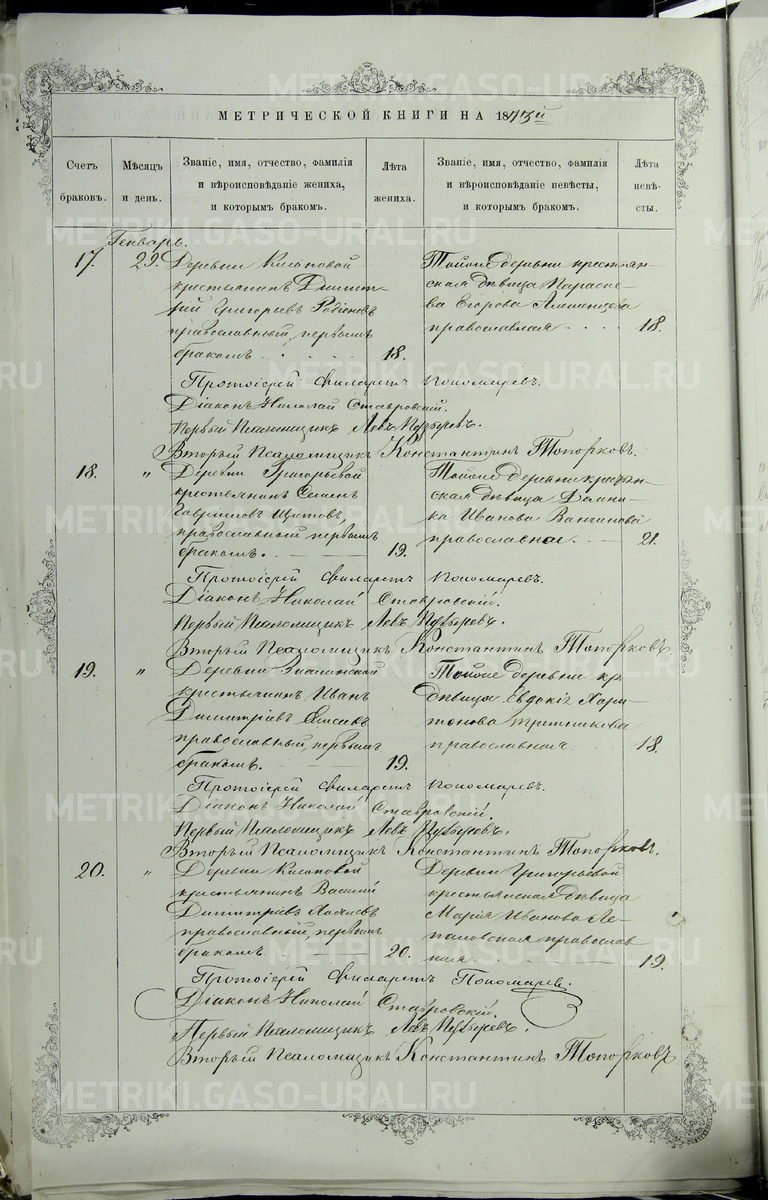 МЕТРИЧЕСКОЙ КНИГИ НА 1873й
Счетъ браковъ.
Мѣсяцъ и день.
Званіе, имя, отчество, фамилія и вѣроисповѣданіе жениха, и которымъ бракомъ.
Лѣта жениха.
Званіе, имя, отчество, фамилія и вѣроисповѣданіе невѣсты, и которымъ бракомъ.
Лѣта невѣ-сты.
Генварь.
17. 29. Деревни
крестьянинъ Димит-
рій Григорьевъ Родіоновъ
православный, первымъ
бракомъ. 18.
Тойже деревни крестьян-
ская дѣвица Параске-
ва Егорова
православная 18.
Протоіерей Филаретъ Пономаревъ.
Діаконъ Николай Ставровскій.
Первый Псаломщикъ Левъ Пузыревъ.
Второый Псаломщикъ Константинъ Топорковъ.
18. " Деревни Григорьевой
крестьянинъ Семенъ
Гавриловъ Щитовъ,
православный, первымъ
бракомъ. 19.
Тойже деревни крестьян-
ская дѣвица Домни-
ка Иванова
православная. 21.
Протоіерей Филаретъ Пономаревъ.
Діаконъ Николай Ставровскій.
Первый Псаломщикъ Левъ Пузыревъ.
Вторый Псаломщикъ Константинъ Топорковъ.
19. " Деревни
крестьянинъ Иванъ
Димитріевъ Елисеевъ
православный, первымъ
бракомъ. 19.
Тойже деревни кр.
дѣвица Евдокія Хари-
тонова
православная. 18.
Протоіерей Филаретъ Пономаревъ.
Діаконъ Николай Ставровскій.
Первый Псаломщикъ Левъ Пузыревъ.
Вторый Псаломщикъ Константинъ Топорковъ.
20. " Деревни
крестьянинъ Василій
Димитріевъ
православный, первымъ
бракомъ. 20.
Деревни Григорьевой
крестьянская дѣвица
Марія Иванова Ле-
паловская православ
ная 19.
Протоіерей Филаретъ Пономаревъ.
Діаконъ Николай Ставровскій.
Первый Псаломщикъ Левъ Пузыревъ.
Вторый Псаломщикъ Константинъ Топорковъ
METRIKI.GASO-URAL.RU